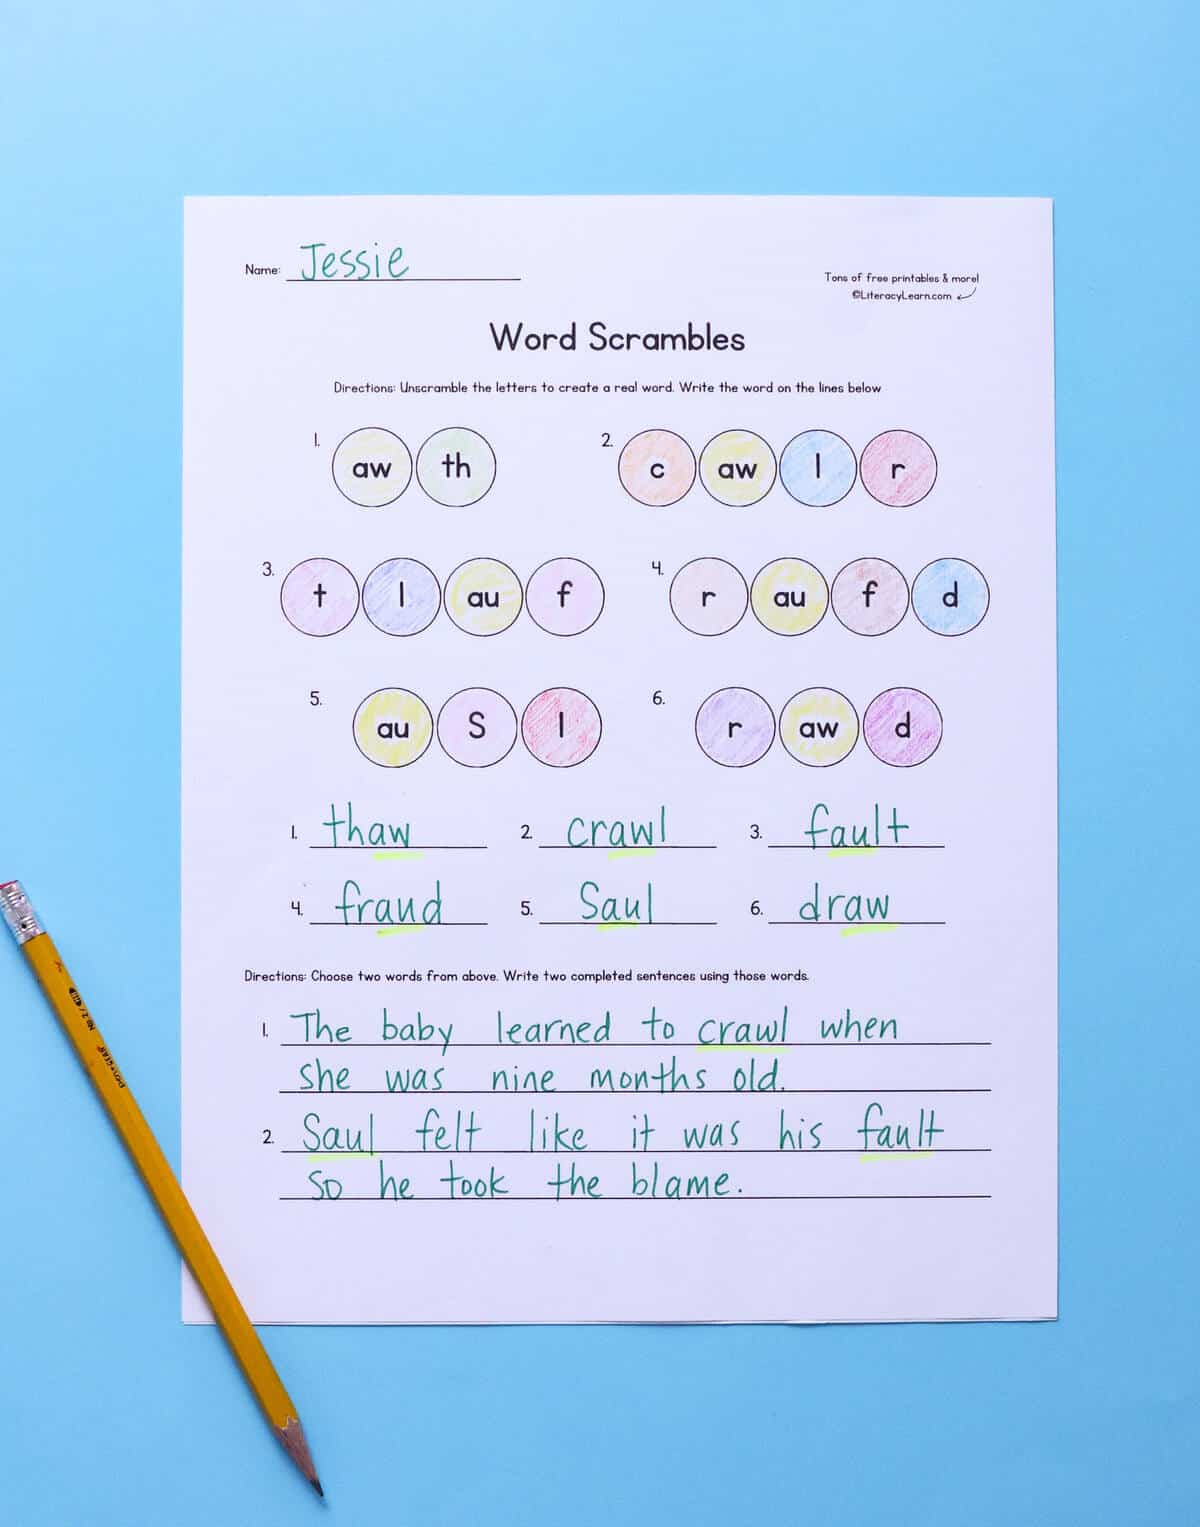 Name: Jessie
Tons of free printables & more!
©LiteracyLearn.com
Word Scrambles
Directions: Unscramble the letters to create a real word. Write the word on the lines below
1. aw th 2. c aw l r
3. t l au f 4. r au f d
5. au S l 6. r aw d
1. thaw 2. crawl 3. fault
4. fraud 5. Saul 6. draw
Directions: Choose two words from above. Write two completed sentences using those words.
1. The baby learned to crawl when
she was nine months old.
2. Saul felt like it was his fault
so he took the blame.